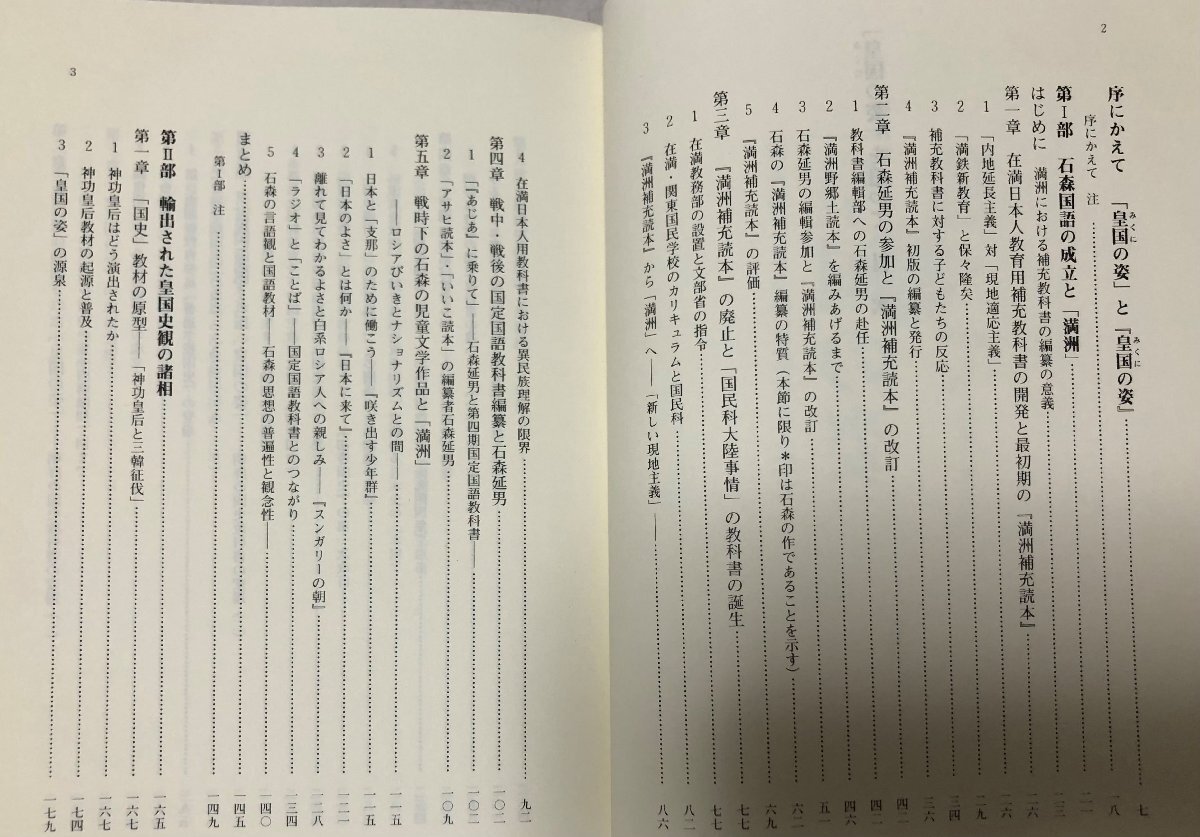 2
序にかえて 「皇国の姿」と『皇国の姿』……七
みくに
みくに
序にかえて 注……一八
第Ⅰ部 石森国語の成立と「満洲」……二一
はじめに 満洲における補充教科書の編纂の意義……二一
第一章 在満日本人教育用補充教科書の開発と最初期の『満洲補充読本』……二六
1 「内地延長主義」対「現地適応主義」……二六
2 「満鉄新教育」と保々隆矣……二九
3 補充教科書に対する子どもたちの反応……三六
4 『満洲補充読本』初版の編纂と発行……四一
第二章 石森延男の参加と『満洲補充読本』の改訂……四二
1 教科書編輯部への石森延男の赴任……四二
2 『満洲野郷土読本』を編みあげるまで……五一
3 石森延男の編輯参加と『満洲補充読本』の改訂……六二
4 石森の『満洲補充読本』編纂の特質（本節に限り＊印は石森の作であることを示す）……六九
5 『満洲補充読本』の評価……七二
第三章 『満洲補充読本』の廃止と「国民科大陸事情」の教科書の誕生……七七
1 在満教務部の設置と文部省の指令……七七
2 在満・関東国民学校のカリキュラムと国民科……八二
3 『満洲補充読本』から「満洲」へ――「新しい現地主義」――……八六
3
4 在満日本人用教科書における異民族理解の限界……九二
第四章 戦中・戦後の国定国語教科書編纂と石森延男……一〇二
1 「『あじあ』に乗りて」――石森延男と第四期国定国語教科書――……一〇二
2 「アサヒ読本」・「いいこ読本」の編纂者石森延男……一〇九
第五章 戦時下の石森の児童文学作品と「満洲」
――ロシアびいきとナショナリズムとの間――……一一五
1 日本と「支那」のために働こう――『咲き出す少年群』……一一五
2 「日本のよさ」とは何か――『日本に来て』……一二一
3 離れて見てわかるよさと白系ロシア人への親しみ――『スンガリーの朝』……一二八
4 「ラジオ」と「ことば」――国定国語教科書とのつながり……一三四
5 石森の言語観と国語教材――石森の思想の普遍性と観念性――……一四〇
まとめ……一四五
第Ⅰ部 注……一四九
第Ⅱ部 輸出された皇国史観の諸相……一六五
第一章 「国史」教材の原型――「神功皇后と三韓征伐」……一六七
1 神功皇后はどう演出されたか……一六七
2 神功皇后教材の起源と普及……一七四
3 「皇国の姿」の源泉……一七九